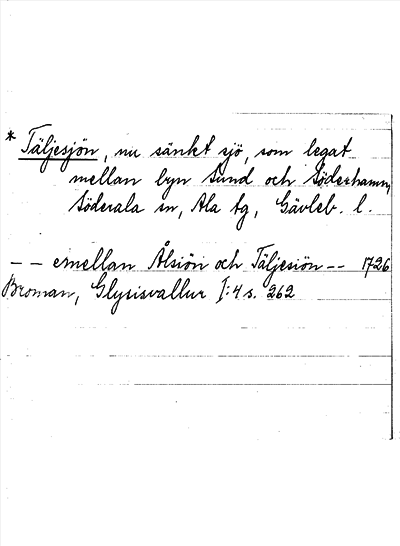 * Täljesjön, nu sänkt sjö, som legat
mellan byn Sund och Söderhamn,
Söderala sn, Ala tg, Gävleb. l.
-- emellan Ålsiön och Täljesiön -- 1726
Broman, Glysisvallur I:4 s. 262